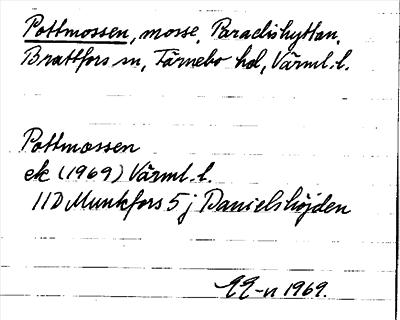 Pottmossen, mosse, Paradishyttan,
Brattfors sn, Färnebo hd, Värml. l.
Pottmossen
ek (1969) Värml. l.
11D Munkfors 5j Danielshöjden
1969.